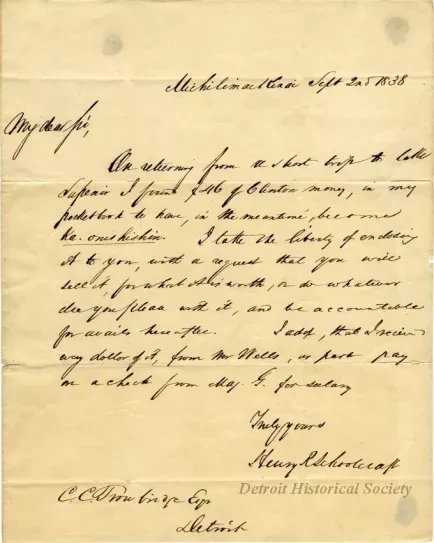 Michilimackinac Sept 2nd 1838
My dear Sir,
On returning from a short trip to Lake
Superior I found $46 of Clinton money, in my
pocketbook to have, in the meantime, become
Ka-onishishin. I take the liberty of enclosing
it to you, with a request that you will
sell it, for what it is worth, or do whatever
else you please with it, and be accountable
for avails hereafter. I add, that I received
every dollar of it, from Mr Wells, as part pay
on a check from Maj. G. for salary
Truly yours
Henry R Schoolcraft
C. C. Trowbridge Esqr
Detroit
Detroit Historical Society